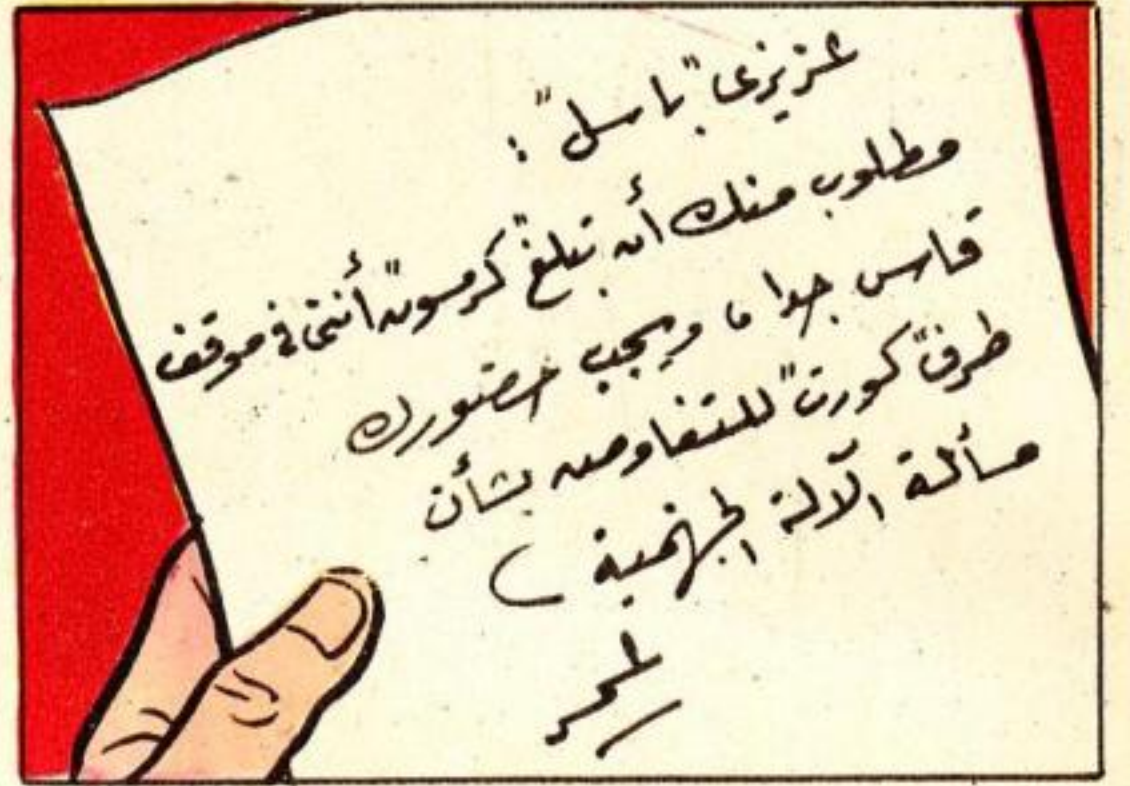 عزيزى "باسل" :
مطلوب منك أن تبلغ "كرسون" أننى فى موقف
قاس جدا ، ويجب حضورك
طرف "كورت" للتفاوض بشأن
مسألة الآلة الجهنمية